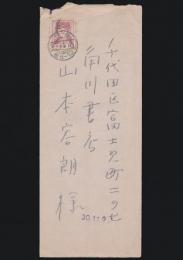 千代田区富士見町二ノ七
角川書店
山本容朗様
30.11.9